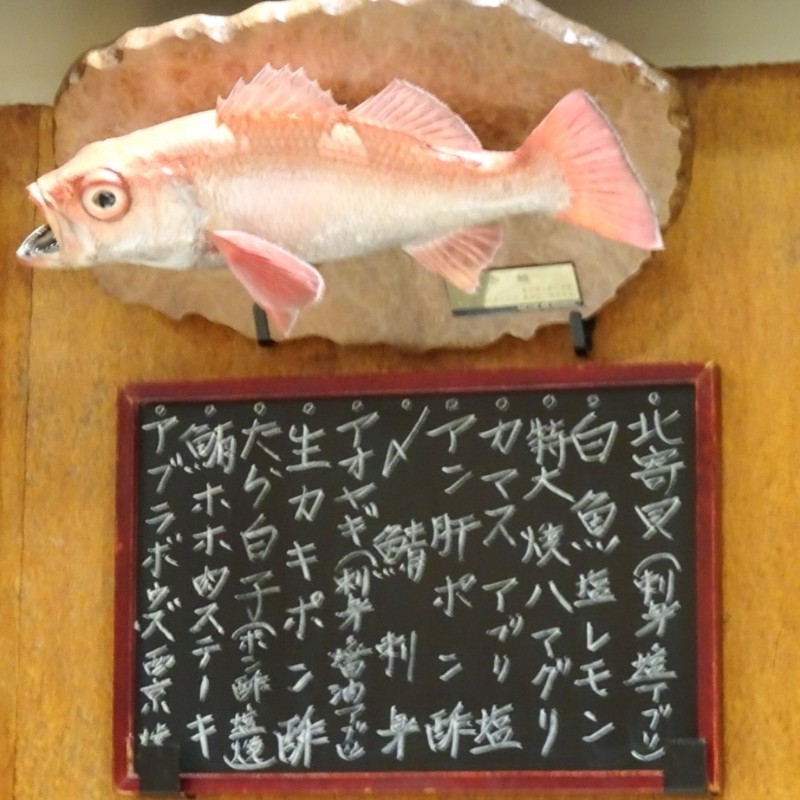 北寄貝(刺身 塩アブリ)
白魚 塩レモン
特大焼ハマグリ
カマス アブリ塩
アン肝ポン酢
〆鯖 刺身
アオヤギ(刺身 醤油アブリ)
生カキポン酢
たら白子(ポン酢 塩焼)
鮪ホホ肉ステーキ
アブラボウズ西京焼